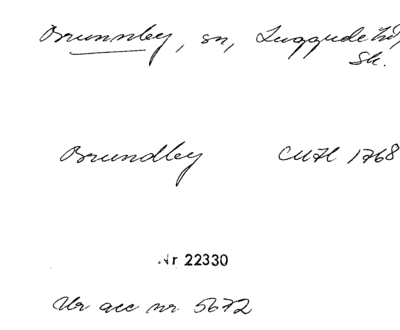 Brunnsley, sn, Luggude hd,
Sk.
Brundley CMH 1768
Nr 22330
Ur acc nr 5672